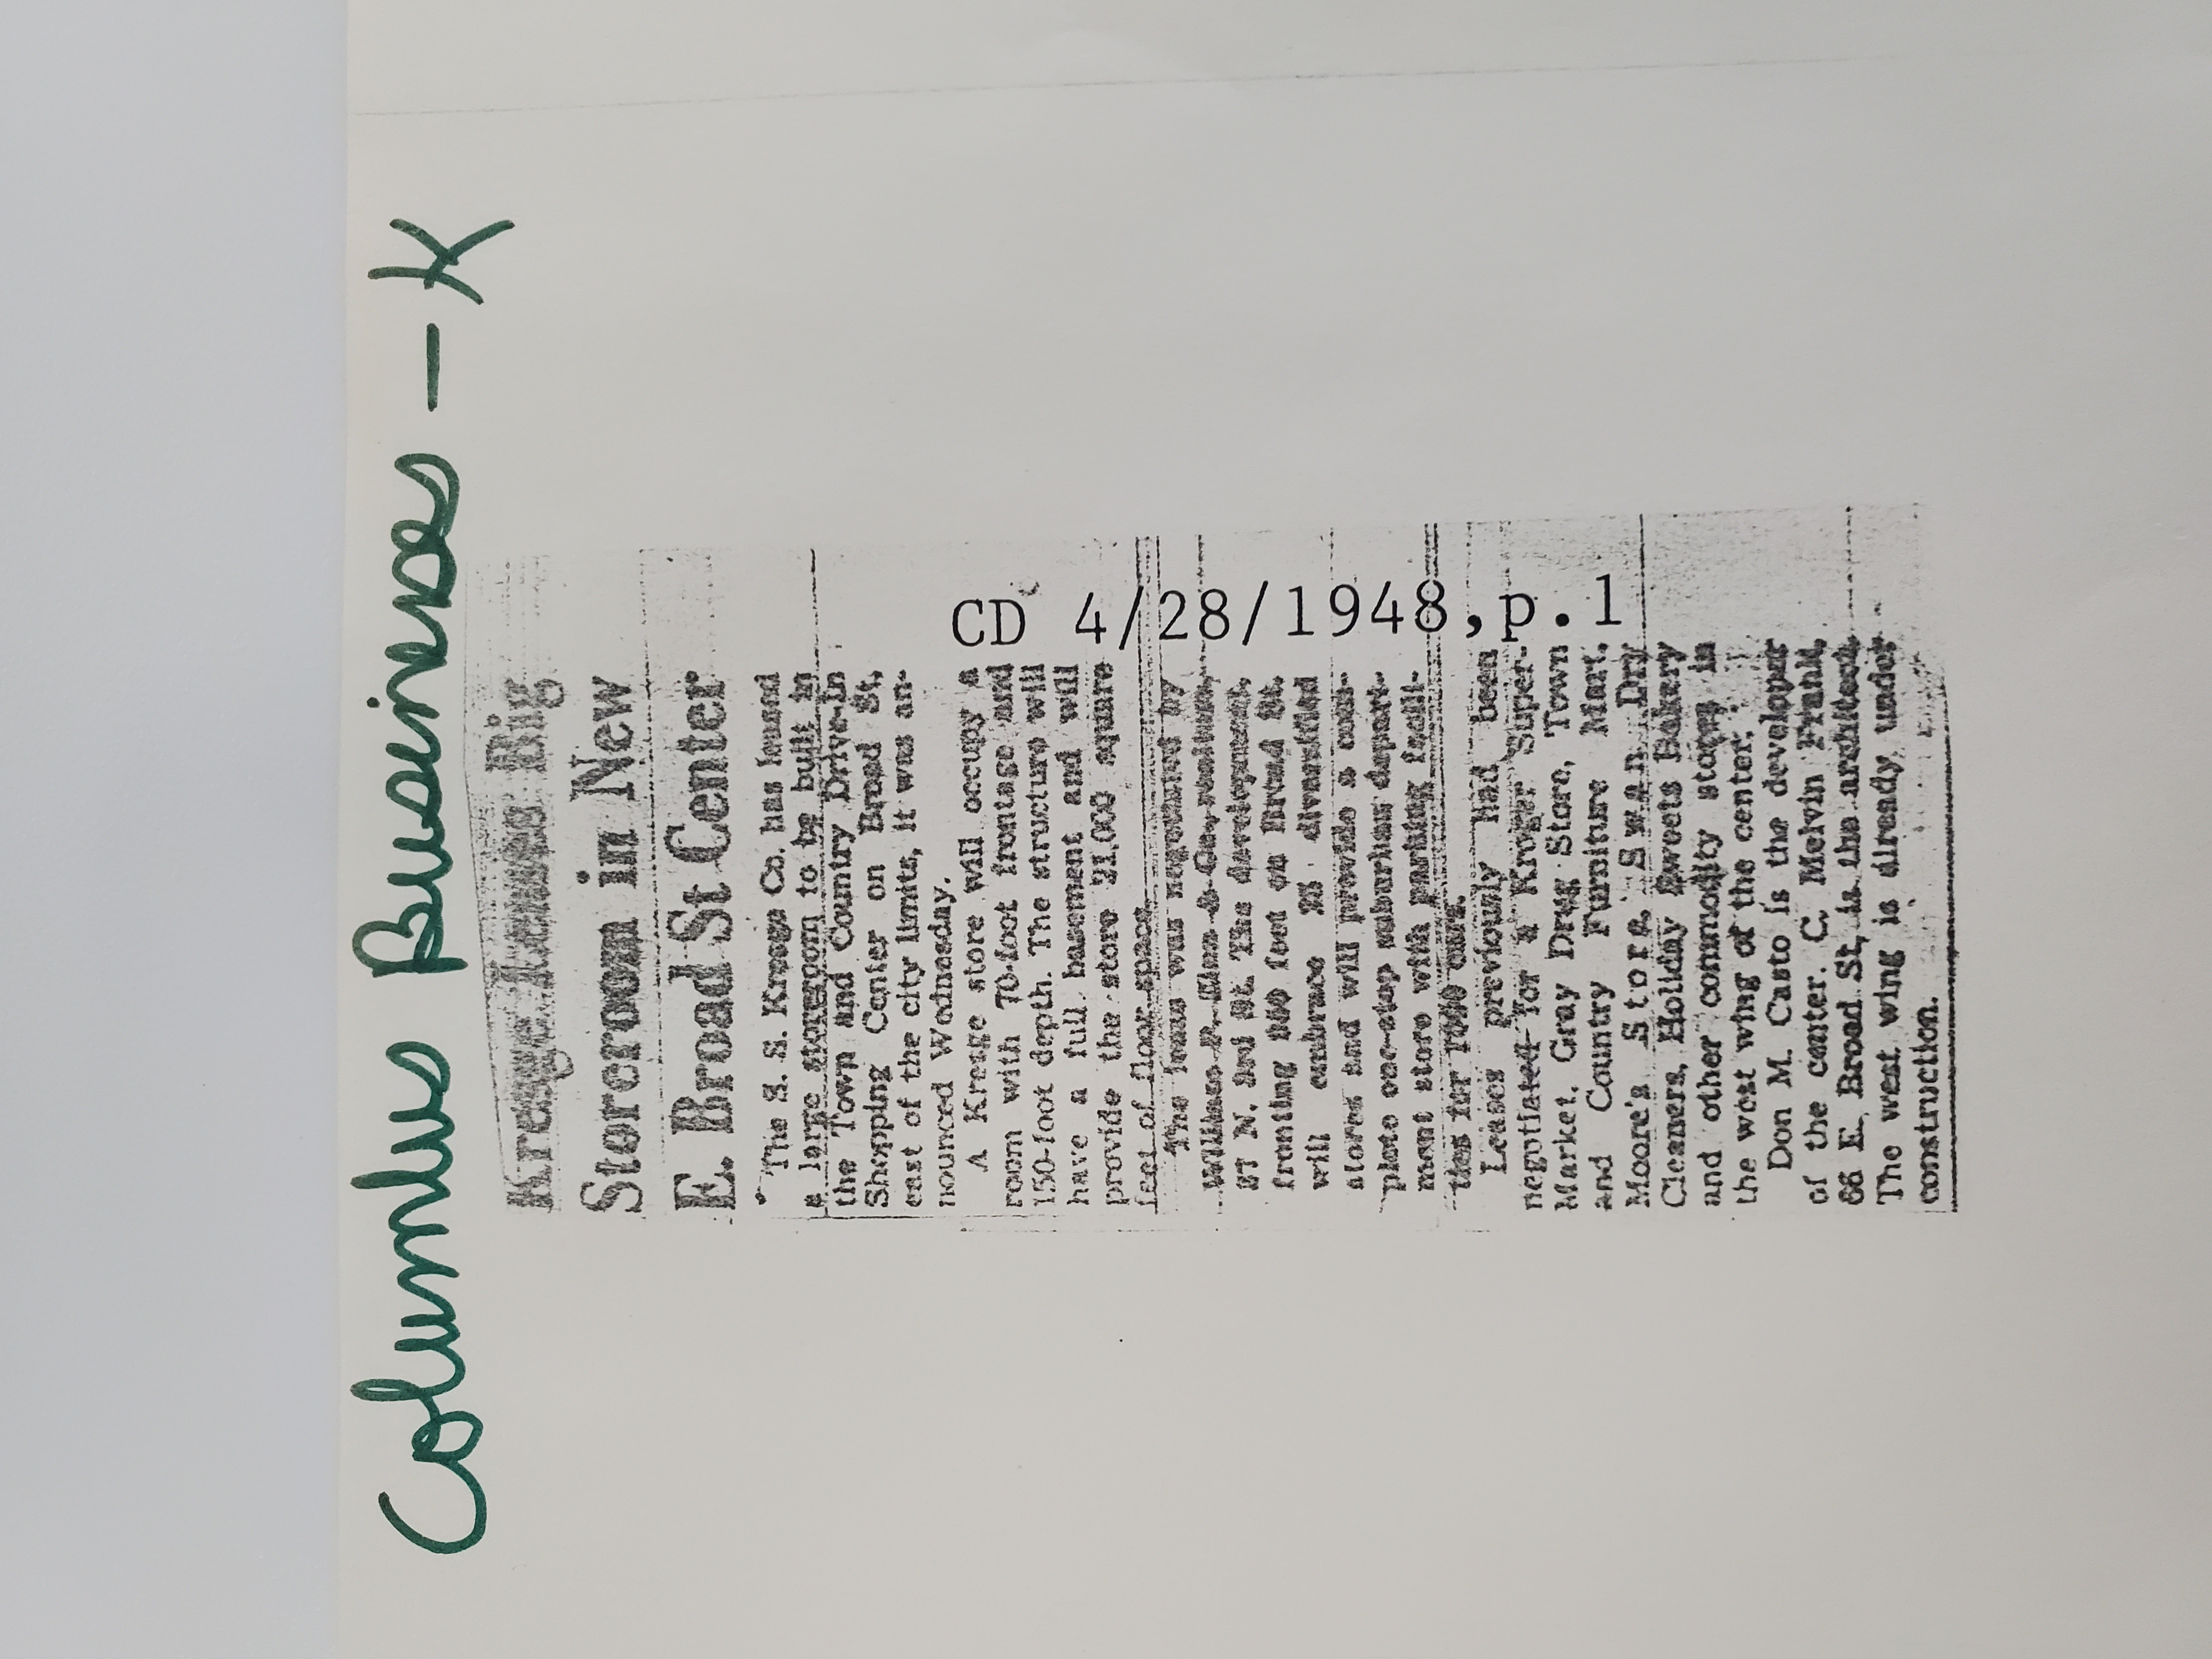 Columbus Businesses - K
Kresge Leases Big
Storeroom in New
E. Broad St Center
The S. S. Kresge Co. has leased
a large storeroom to be built in
the Town and Country Drive-in
Shopping Center on Broad St,
east of the city limits, it was an-
nounced Wednesday.
A Kresge store will occupy a
room with 70-foot frontage and
150-foot depth. The structure will
have a full basement and will
provide the store 21,000 square
feet of floor space.
The lease was negotiated by
William P.
N. 3rd St. The development,
fronting feet on Broad St.
will embrace diversified
stores and will provide a com-
plete one-stop suburban depart-
ment store with parking facili-
ties for cars.
Leases previously had been
negotiated for a Kroger Super-
Market, Gray Drug Store, Town
and Country Furniture Mart,
Moore's Store, Swan Dry
Cleaners, Holiday Sweets Bakery
and other commodity stores in
the west wing of the center.
Don M. Casto is the developer
of the center. C. Melvin Frahk,
66 E. Broad St, is the architect.
The west wing is already under
construction.
CD 4/28/1948, p.1